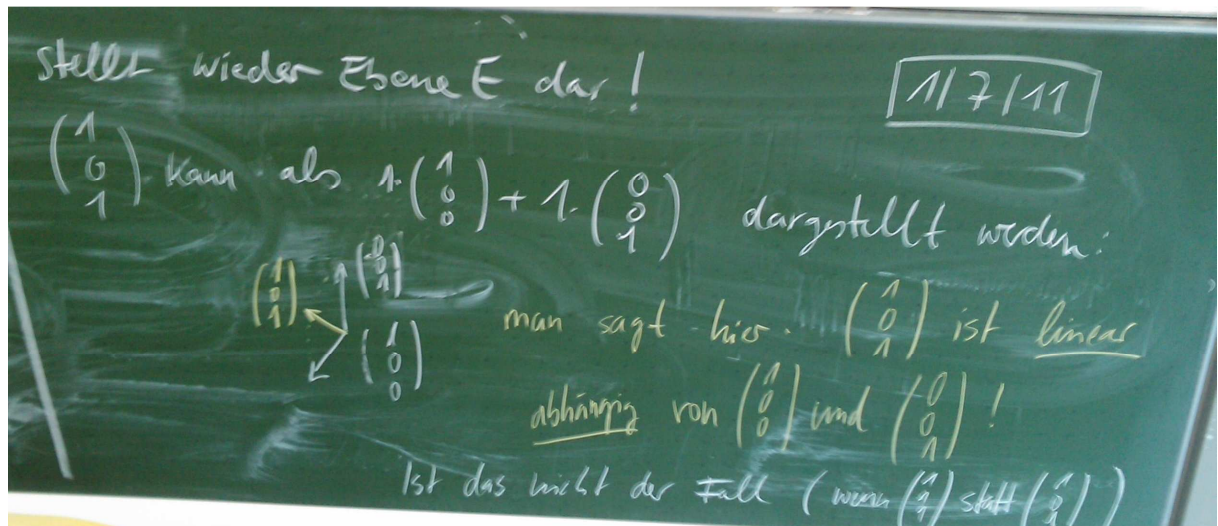 stellt wieder Ebene E dar!
1/7/11
(1 0 1) kann als 1·(1 0 0) + 1·(0 0 1) dargestellt werden:
(1 0 1) (0 0 1)
(1 0 0)
man sagt hier: (1 0 1) ist linear
abhängig von (1 0 0) und (0 0 1)!
Ist das nicht der Fall (wenn (1 1 1) statt (1 0 1))